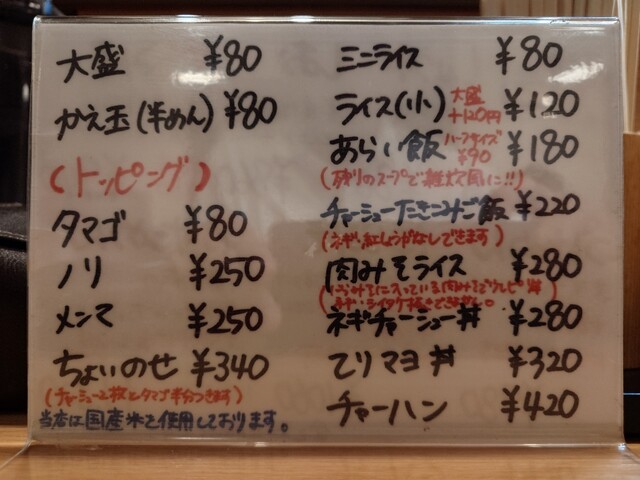 大盛 ¥80
かえ玉(半めん) ¥80
(トッピング)
タマゴ ¥80
ノリ ¥250
メンマ ¥250
ちょいのせ ¥340
(チャーシュー2枚とタマゴ半分つきます)
当店は国産米を使用しております。
ミニライス ¥80
ライス(小) 大盛+120円 ¥120
あらい飯 ハーフサイズ¥90 ¥180
(残りのスープで雑炊風に!!)
チャーシューたきこみご飯 ¥220
(ネギ・紅しょうがなしできます)
肉みそライス ¥280
ネギチャーシュー丼 ¥280
てりマヨ丼 ¥320
チャーハン ¥420